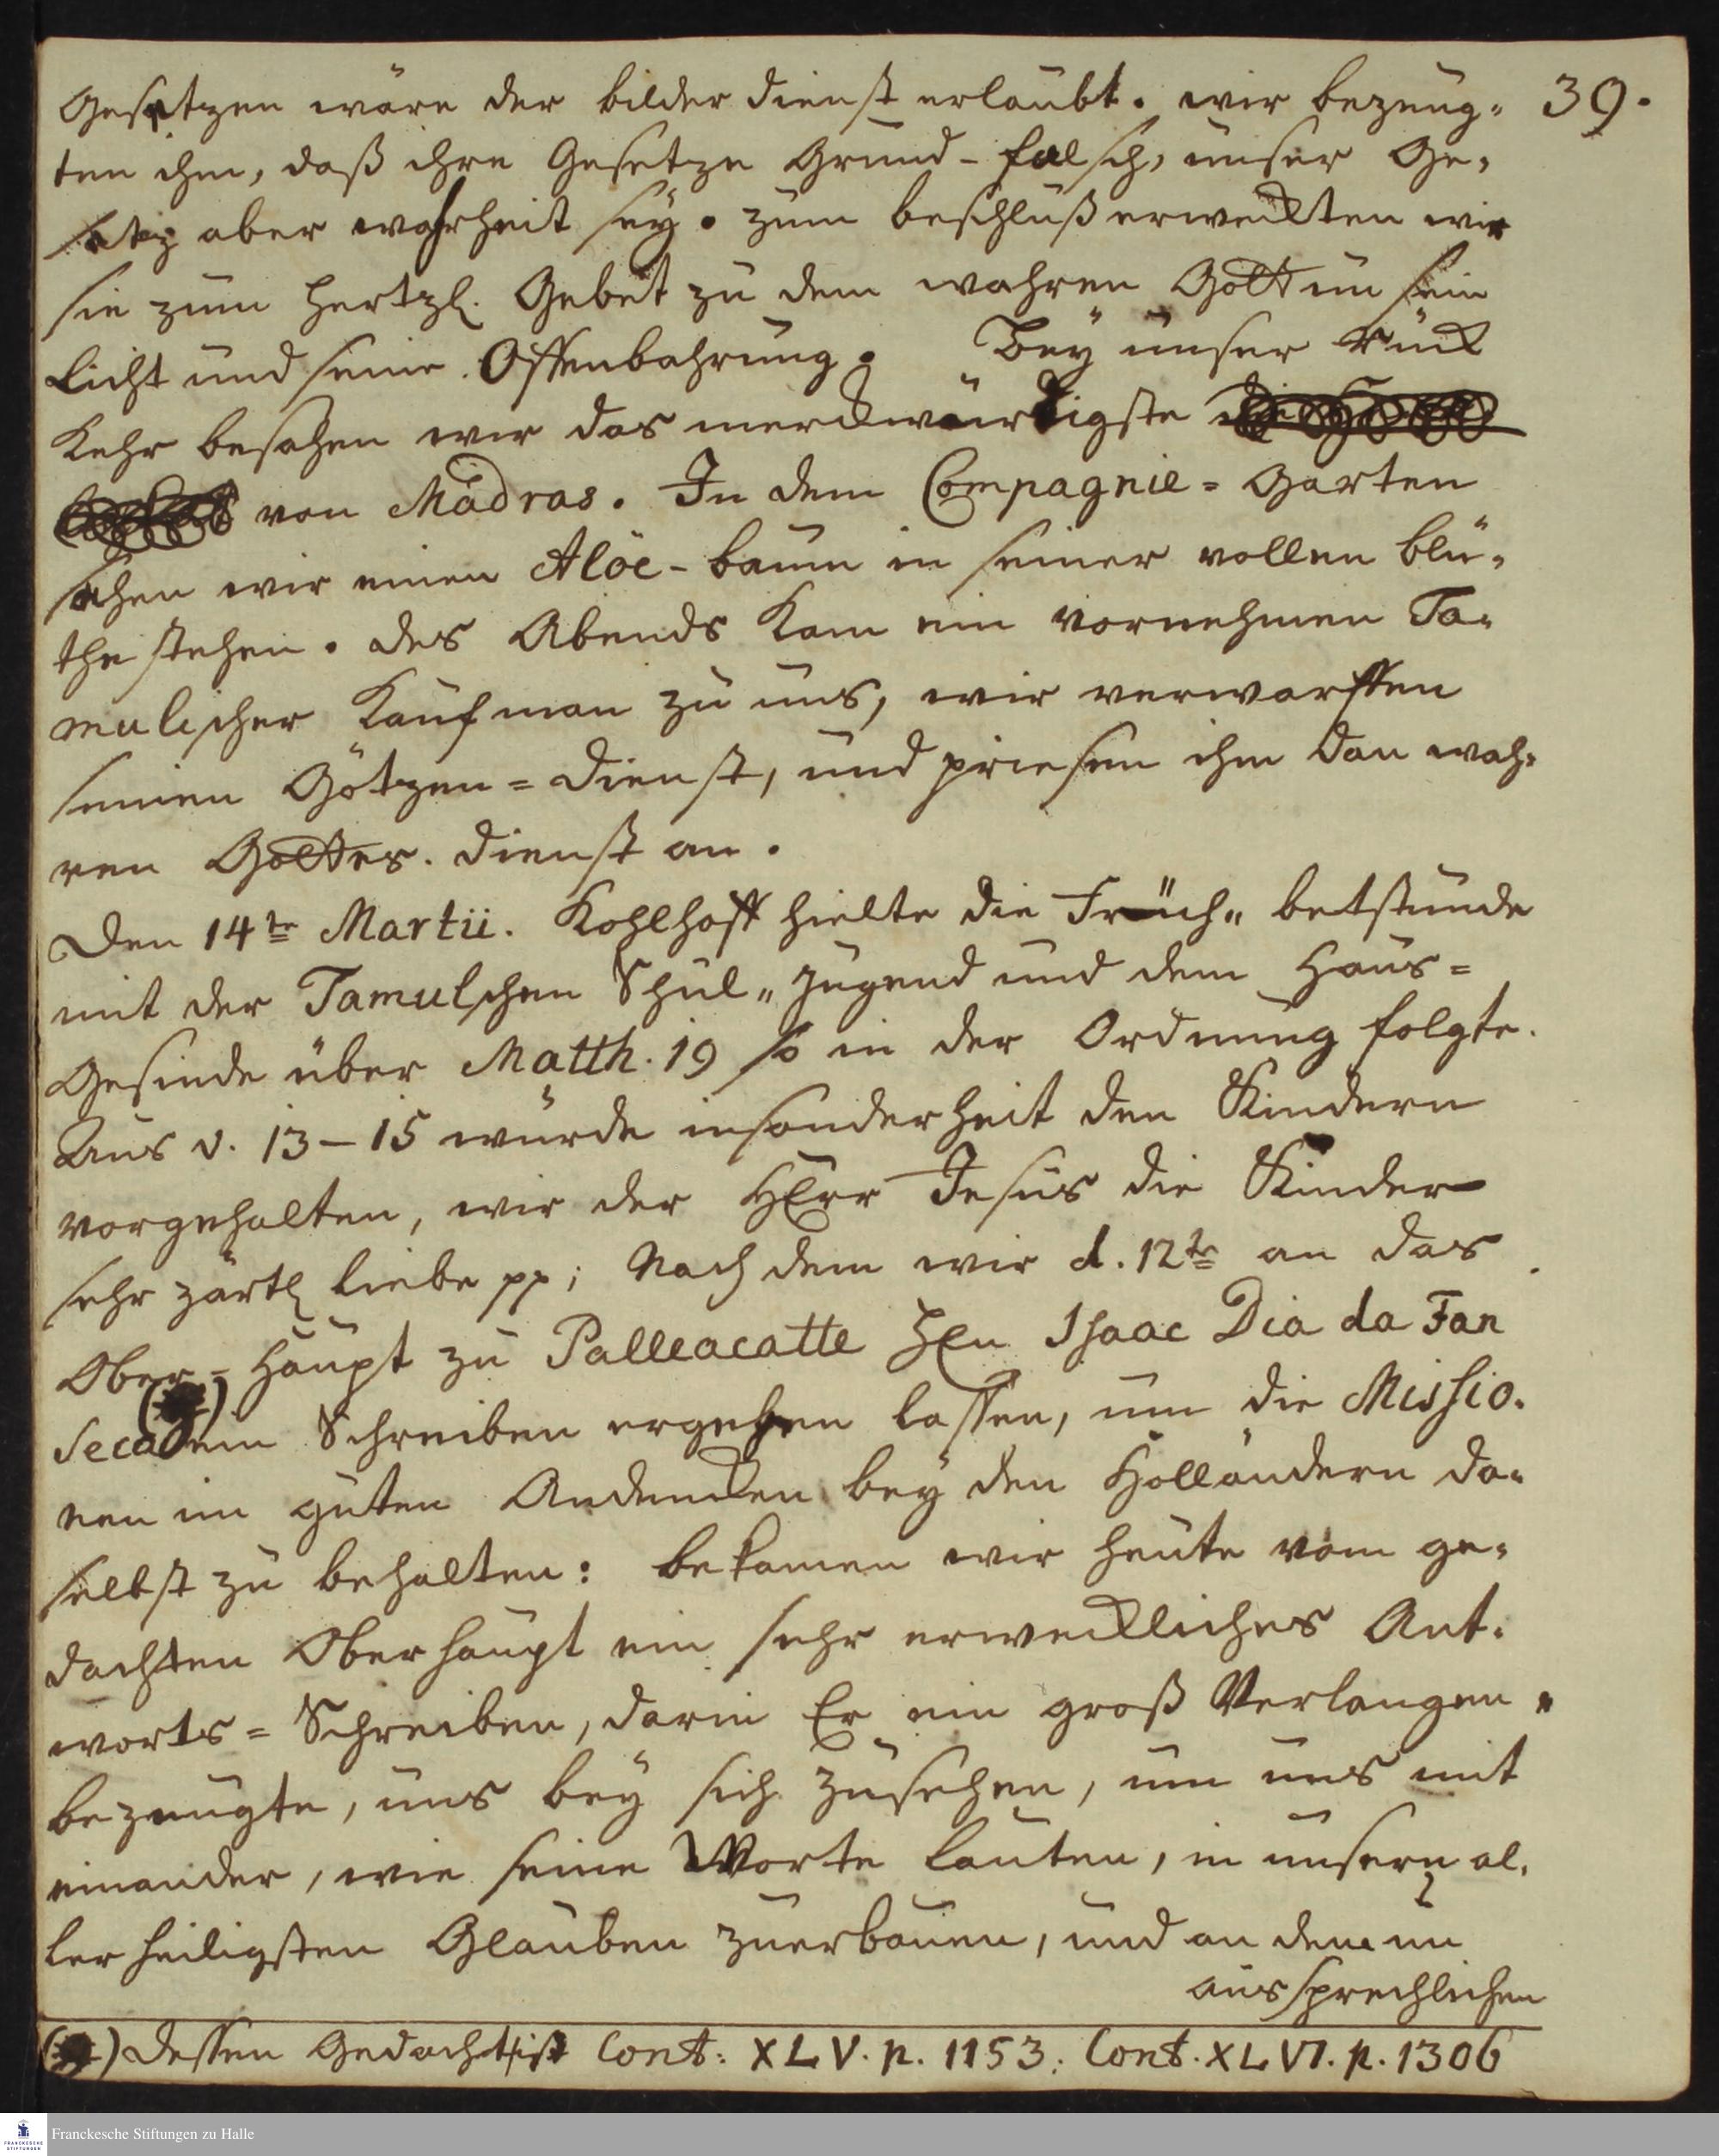 39.
Gesetzen wäre der bilder dienst erlaubt. wir bezeug-
ten ihm, daß ihre Gesetze Grund-falsch, unser Ge-
setz aber wahrheit seÿ. zum beschluß erweckten wir
sie zum hertzl. Gebet zu dem wahren Gott um sein
licht und seine Offenbahrung. Beÿ unser rück
Kehr besahen wir das merckwürdigste
von Madras. In dem Compagnie=Garten
sahen wir einen Aloe-baum in seiner vollen blü-
the stehen. des Abends kam ein vornehmen Ta-
mulischer Kaufman zu uns, wir verwarffen
seinen Götzen=dienst, und priesen ihm den wah-
ren Gottes. dienst an.
Den 14te Martii. Kohlhoff hielte die Früh„betstunde
mit der Tamulschen Schul„jugend und dem Haus=
Gesinde über Matth. 19 so in der Ordnung folgte.
Aus v. 13–15 wurde insonderheit den Kindern
vorgehalten, wie der HErr Jesus die Kinder
sehr zärtl liebe pp; Nach dem wir d. 12te an das
Ober-Haupt zu Palleacatte HEn Isaac Dia da Fan
seca (*) ein Schreiben ergehen lassen, um die Missio-
nen im guten Andencken beÿ den Holländern da-
selbst zu behalten: bekamen wir heute vom ge-
dachten Oberhaupt ein sehr erweckliches Ant-
worts=Schreiben, darin Er ein groß Verlangen
bezeugte, uns beÿ sich zusehen, um uns mit
einander, wie seine Worte lauten, in unsern al-
lerheiligsten Glauben zuerbauen, und an dem un
aussprechlichen
(*) dessen Gedacht ist Cont: XLV. p. 1153. Cont. XLVI. p. 1306
Franckesche Stiftungen zu Halle